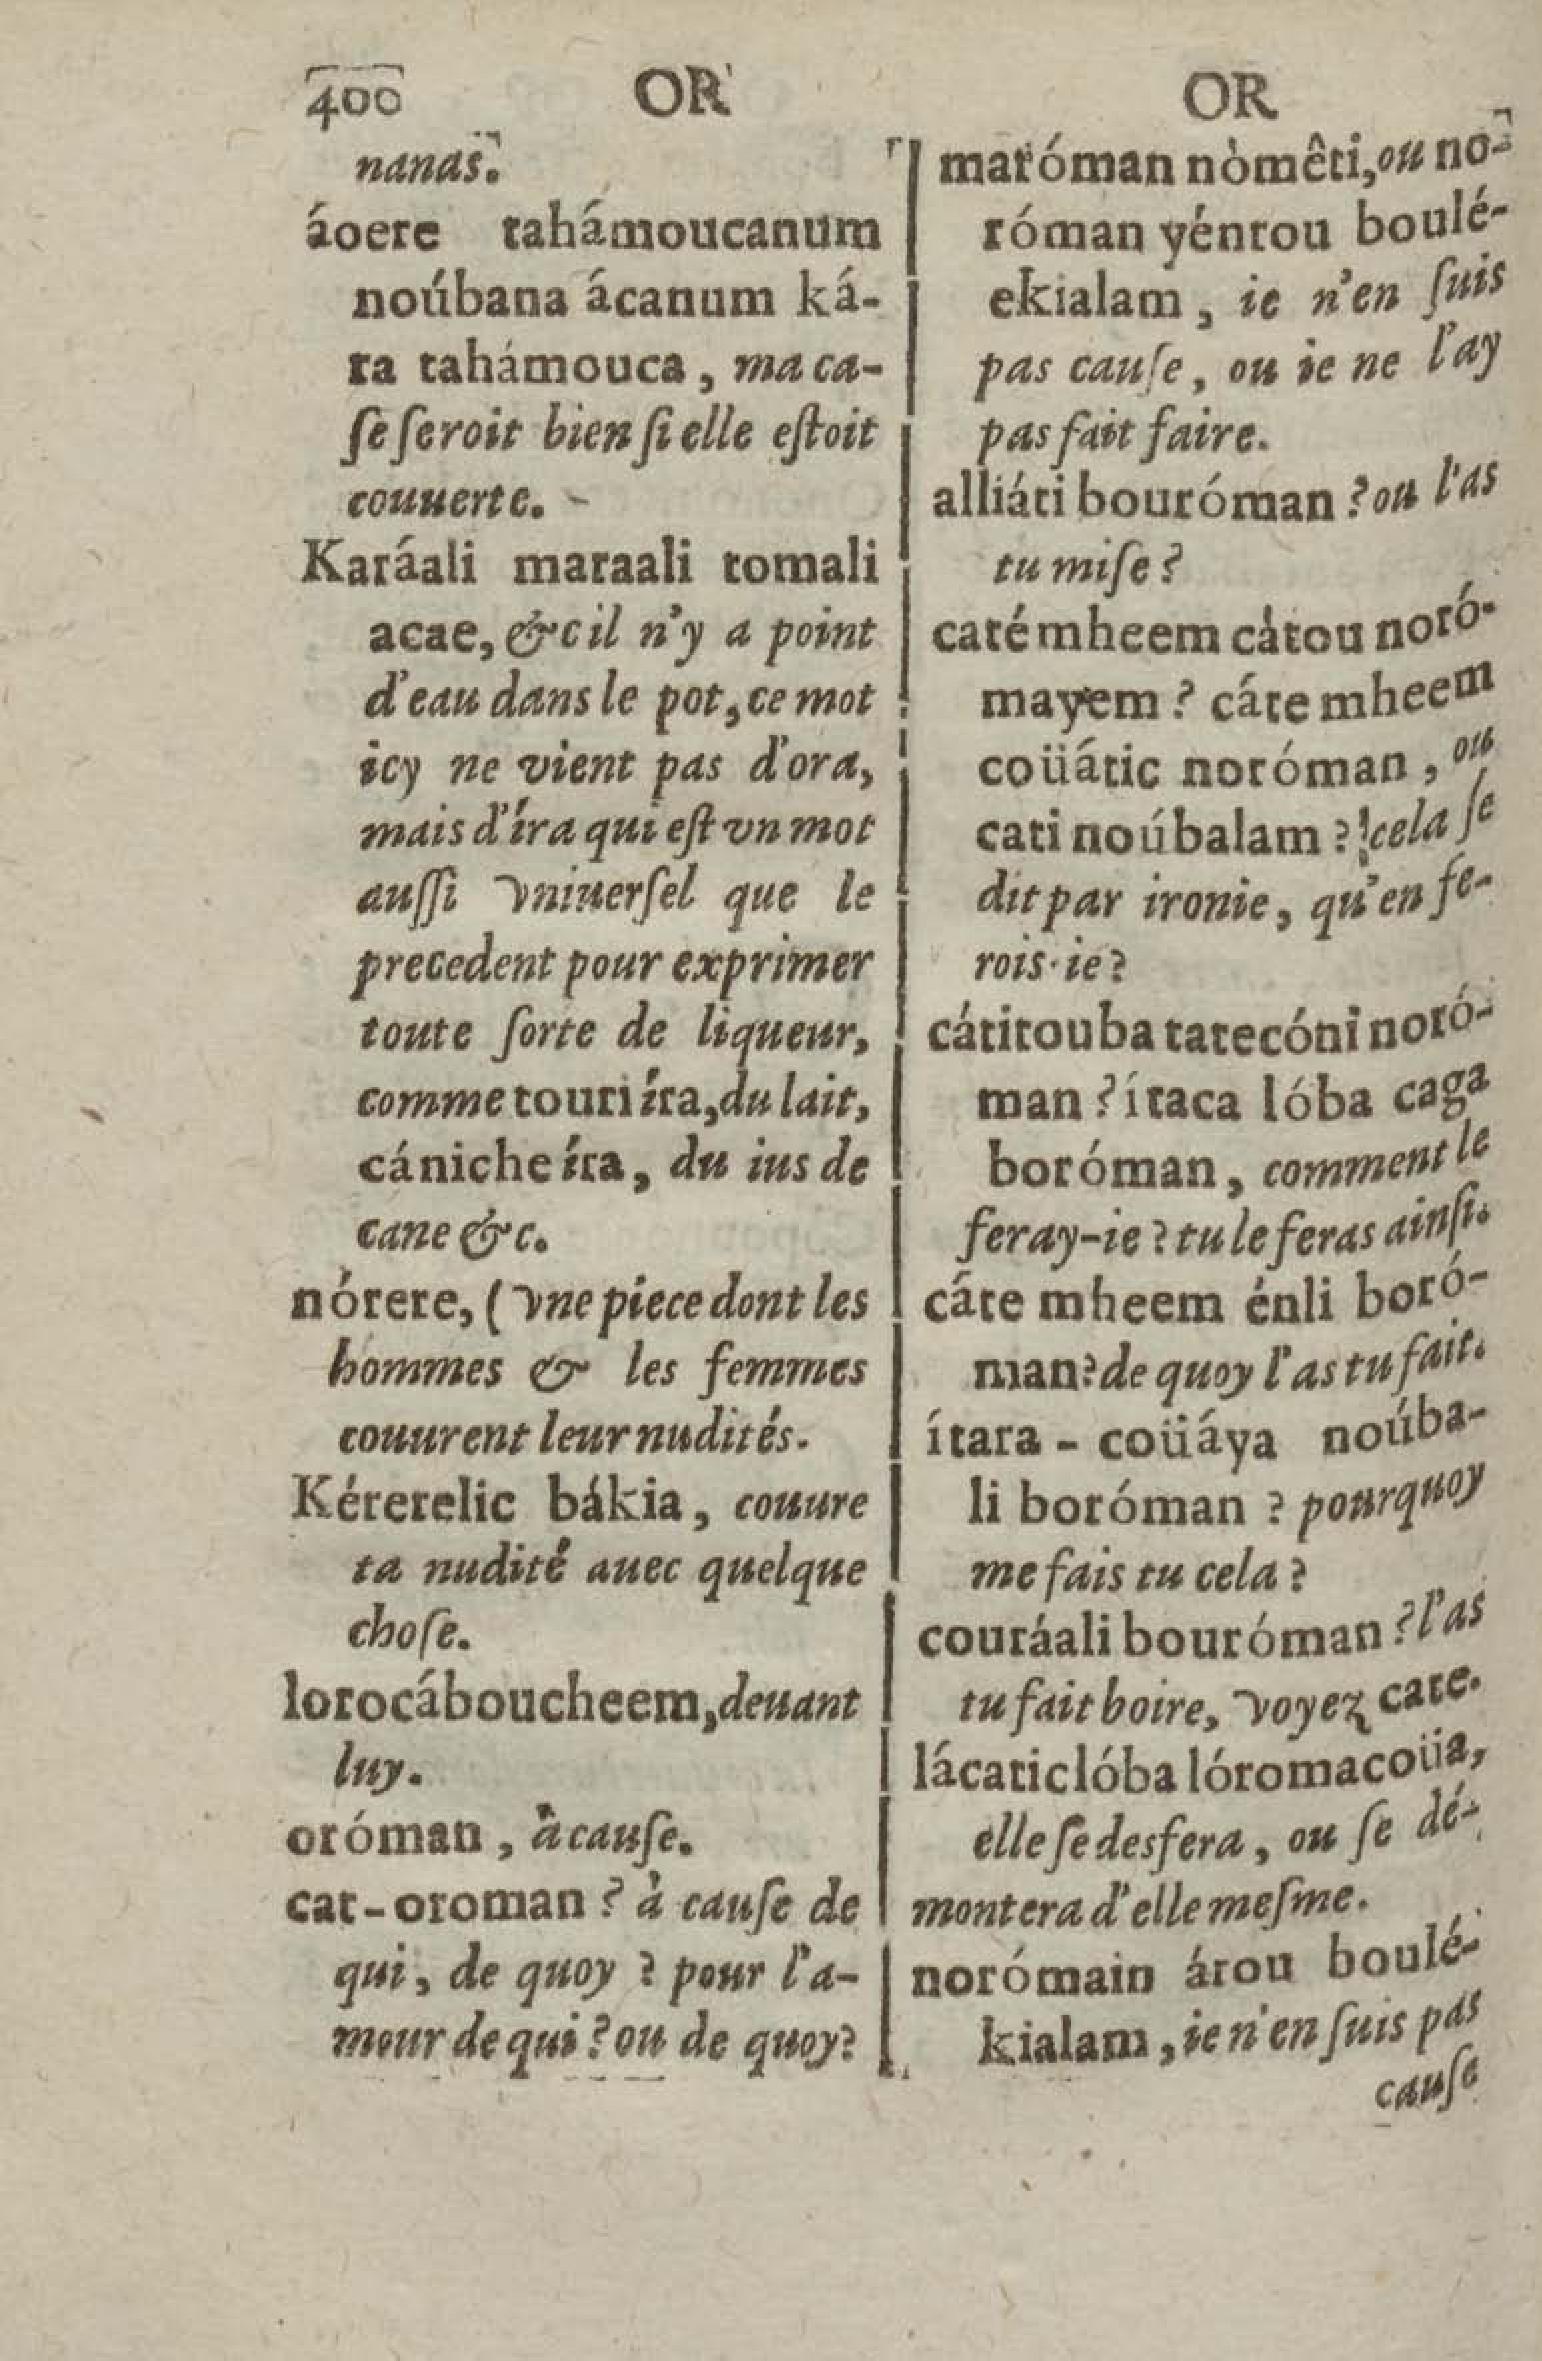 400 OR OR
nanas.
áoere tahámoucanum
noúbana ácanum ká-
ra tahámouca, ma ca-
ſe ſeroit bien ſi elle eſtoit
couuerte.
Karáali maraali tomali
acae, &c il n'y a point
d'eau dans le pot, ce mot
icy ne vient pas d'ora,
mais d'íra qui eſt vn mot
auſſi vniuerſel que le
precedent pour exprimer
toute ſorte de liqueur,
comme touri íra, du lait,
cániche íra, du ius de
cane &c.
nórere, (vne piece dont les
hommes & les femmes
couurent leur nudités.
Kérerelic bákia, couure
ta nudité auec quelque
choſe.
lorocáboucheem, deuant
luy.
oróman, à cauſe.
cat-oroman ? à cauſe de
qui, de quoy ? pour l'a-
mour de qui ? ou de quoy?
maróman nòmêti, ou no-
róman yéntou boulé-
ekialam, ie n'en ſuis
pas cauſe, ou ie ne l'ay
pas fait faire.
alliáti bouróman ? ou l'as
tu miſe ?
caté mheem càtou noró-
mayem ? cáte mheem
coüátic noróman, ou
cati noúbalam ? cela ſe
dit par ironie, qu'en fe-
rois-ie?
cátitouba tatecóni noró-
man ? ítaca lóba caga
boróman, comment le
feray-ie ? tu le feras ainſi.
cáte mheem énli boró-
man? de quoy l'as tu fait.
ítara - coüáya noúba-
li boróman ? pourquoy
me fais tu cela ?
couráali bouróman ? l'as
tu fait boire, voyez cate.
lácatic lóba lóromacoüa,
elle ſe desfera, ou ſe dé-
montera d'elle meſme.
norómain árou boulé-
kialam, ie n'en ſuis pas
cauſe